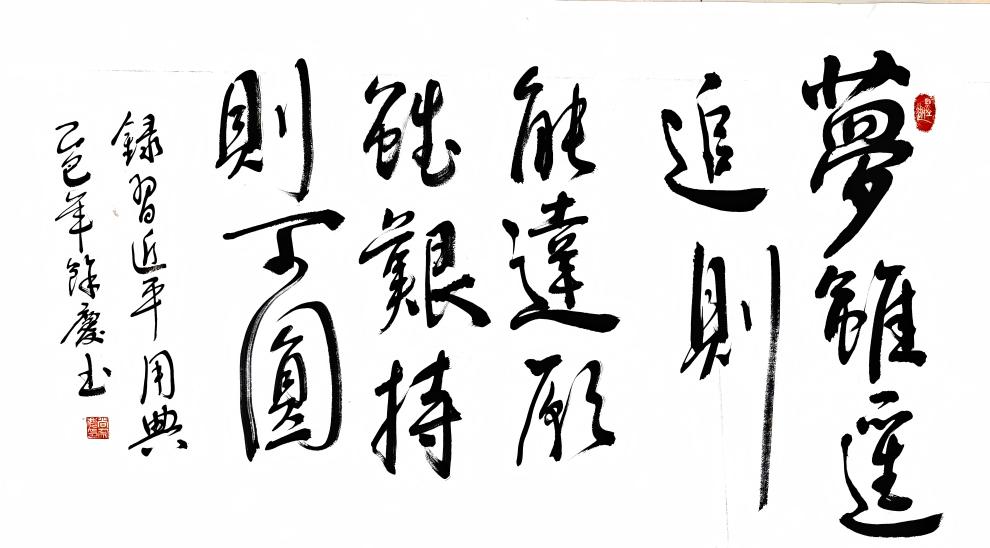 夢雖遥
追則
能達願
雖艱持
則可圓
録習近平用典
乙巳年餘慶书